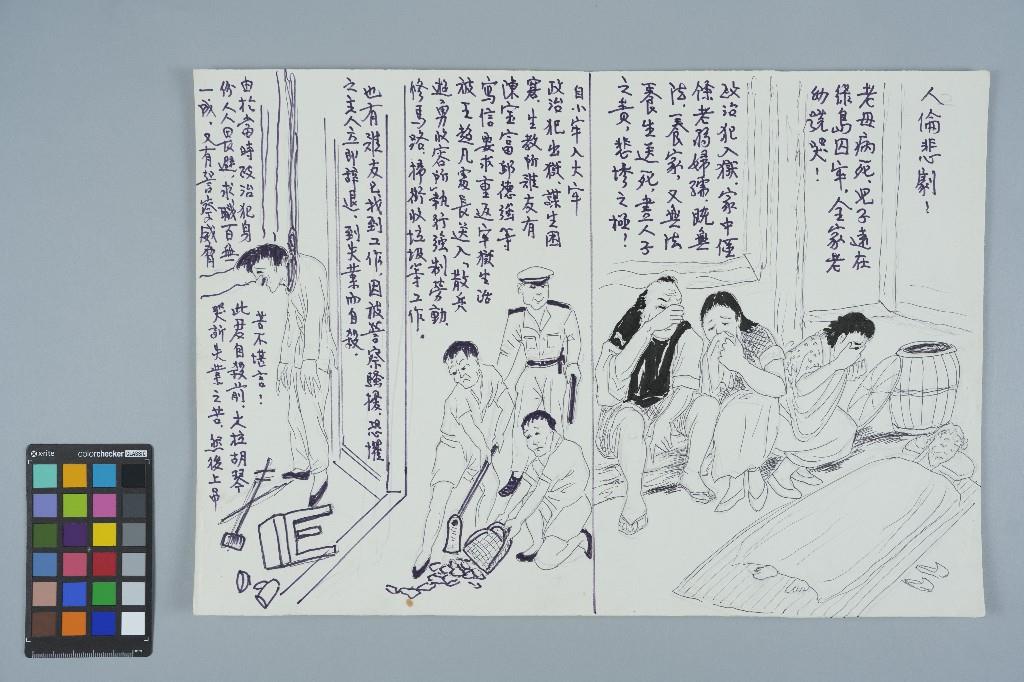 人倫悲劇！
老母病死，兒子遠在
綠島囚牢，全家老
幼號哭！
政治犯入獄，家中僅
條老弱婦孺，既無
法養家，又無法
養生送死，盡人子
之責，悲慘之極！
自小牢入大牢
政治犯出獄，謀生困
窘，生教所難友有
陳宝富邱德強等
寫信要求重返牢獄生活
被王超凡處長送入「散兵
遊勇收容所」執行強制勞動，
修馬路，掃街收垃圾等工作。
也有難友已找到工作，因被警察騷擾，恐懼
之主人立即辭退，到失業而自殺，
由於當時政治犯身
份人人畏避，求職百無
一成，又有警察威脅
苦不堪言！
此君自殺前，大拉胡琴
哭訴失業之苦，然後上吊
x-rite
colorchecker CLASSIC